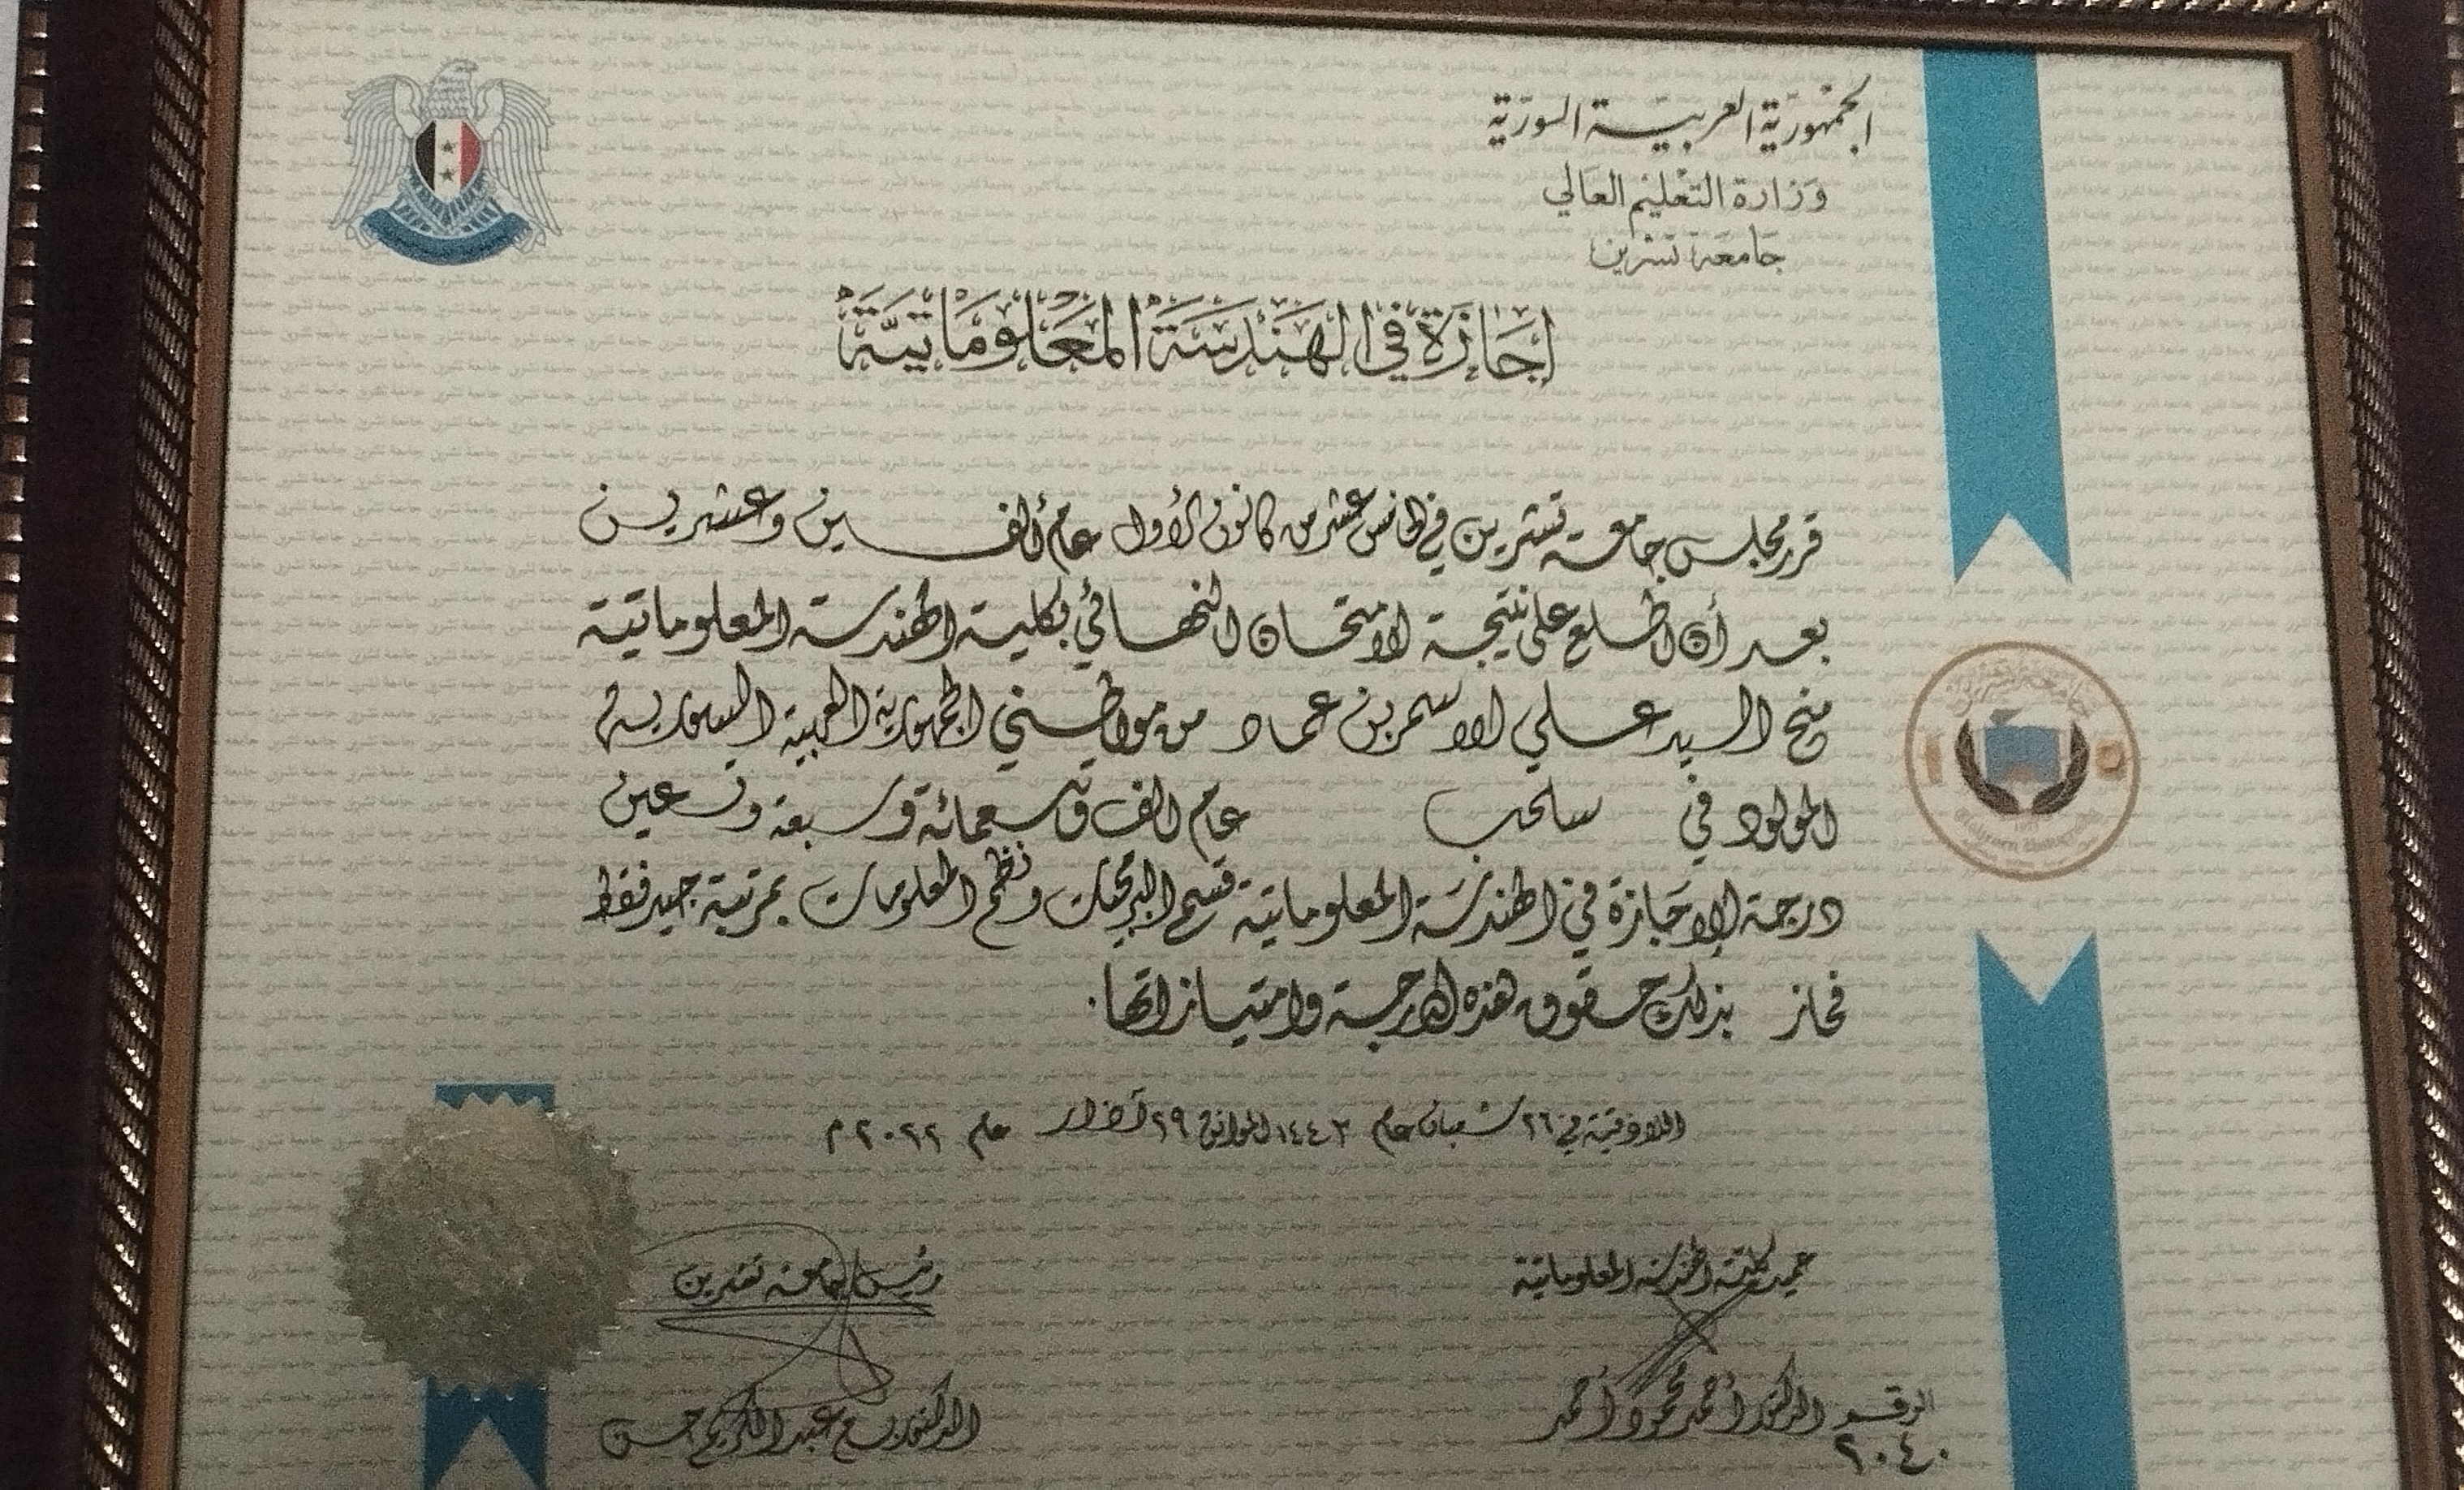 الجمهورية العربية السورية
وزارة التعليم العالي
جامعة تشرين
إجازة في الهندسة المعلوماتية
قرر مجلس جامعة تشرين في الخامس عشر من كانون الأول عام ألفين وعشرين
بعد أن اطلع على نتيجة الامتحان النهائي بكلية الهندسة المعلوماتية
منح السيد علي الاسمر بن عماد من مواطني الجمهورية العربية السورية
المولود في سلحب عام الف وتسعمائة وسبعة وتسعين
درجة الإجازة في الهندسة المعلوماتية قسم البرمجيات ونظم المعلومات بمرتبة جيد فقط
فحاز بذلك حقوق هذه الدرجة وامتيازاتها.
اللاذقية في ٢٦ شعبان عام ١٤٤٣ الموافق ٢٩ آذار عام ٢٠٢٢ م
عميد كلية الهندسة المعلوماتية
رئيس جامعة تشرين
الدكتور أحمد محمود أحمد
الدكتور بسام عبد الكريم حسن
الرقم
٢٠٤٠
جامعة تشرين